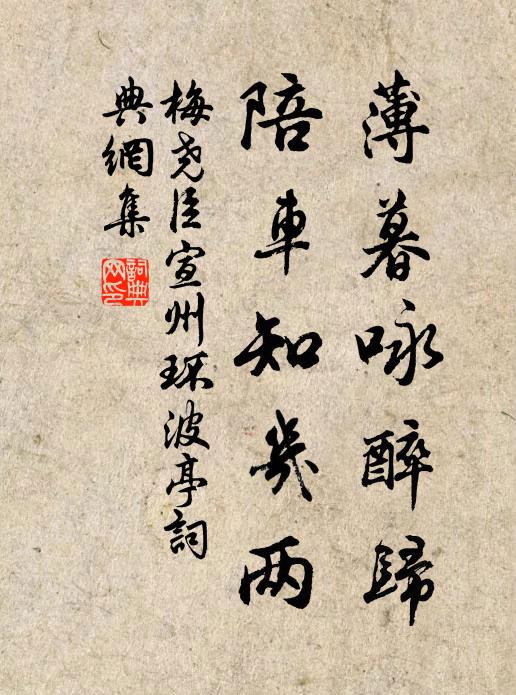 薄暮咏醉歸
陪車知幾兩
梅堯臣宣州環波亭詞
典網集
詞典網印